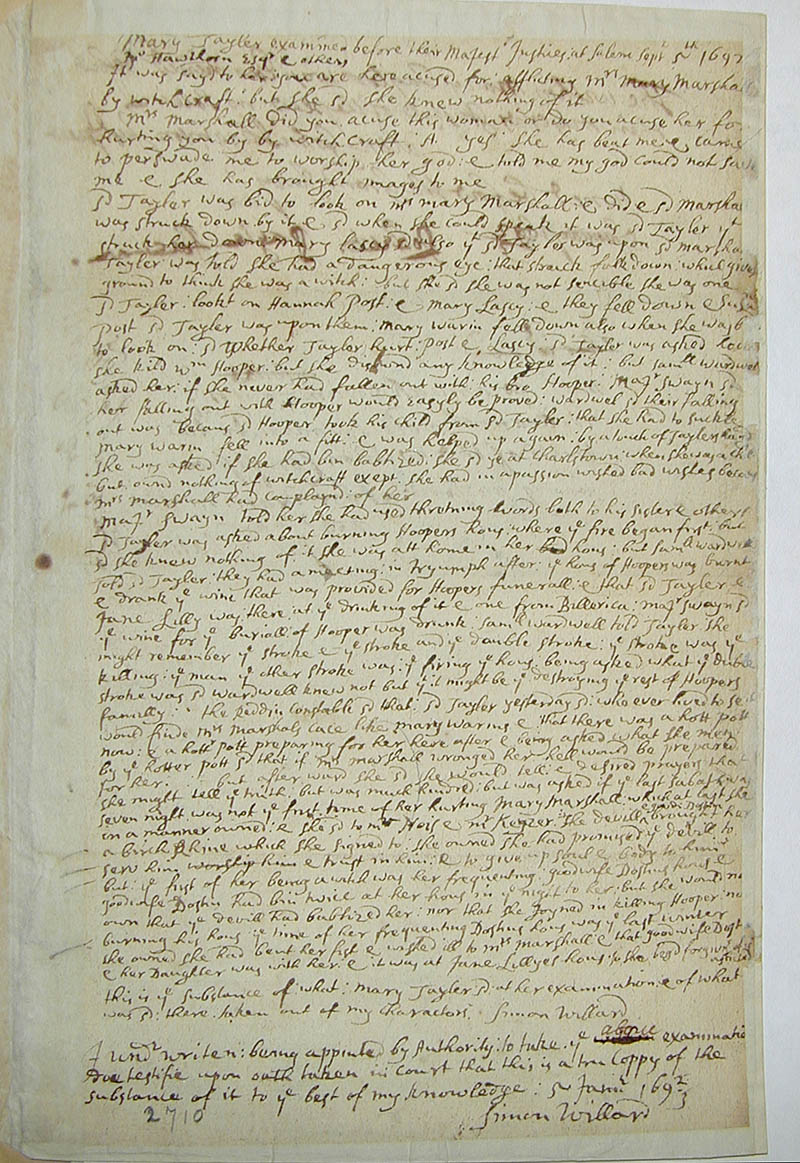 Mary Tayler examined before their Majest^s Justies: at Salem Sept^r 5^th 1692
M^r Hawthorn Esq^r & others
it was sayd to her: you are here acused for: afflicting m^rs mary Marshall
by witchcraft: but she s^d she knew nothing of it
m^rs marshall did you acuse this woman or do you acuse her fo
hurting you by by witch craft: A. yes she has beat me & came
to perswade me to worship her god: & told me my god could not sav
me & she has brought images to me
s^d Tayler was bid to look on m^rs mary Marshall: & did & s^d marsha
was struck down by it & s^d when she could speak it was s^d Tayler y^t
struck her down: mary lascy s^d also y^t s^d Taylor was upon s^d marsha
Tayler was told she had a dangerous eye: that struck folk down: which give
ground to think she was a witch: but she s^d she was not sencible she was one
s^d Tayler: lookt on Hannah Post: & mary Lascy: & they fell down & Susa
post s^d Tayler was upon them: mary warin fell down also when she was b
to look on: s^d Whether Tayler hurt: Post & Lascy: s^d Tayler was asked how
she kild w^m Hooper: but she disownd any knowledge of it: but sam^ll wardwel
asked her: if she never had fallen out with: his bro Hooper: Maj^r Swayn s^d
her falling out with Hooper would easyly be proved: wardwel s^d their falling
out was becaus s^d Hooper took his child from s^d Tayler: that she had to suckle
mary warin fell into a fitt: & was helped up again: by a touch of Taylers hand
she was asked if she had bin babtized: she s^d ye at Charlstown: when she was a chi
but owned nothing of witchcraft exept: she had in a passion wished bad wishes becau
m^rs marshall had complaind: of her
maj^r Swayn told her she had used thretning words both to his sister & others
s^d Tayler was asked about burning Hoopers hous: where y^e fire began first: but
s^d she knew nothing of it she was att home in her bed hous: but sam^ll wardwel
told s^d Tayler: they had a meeting: in Tryumph after: y^e hous of Hoopers was burnt
& drank y^e wine that was provided for Hoopers funerall: & that s^d Tayler &
Jane Lilly was there: at y^e drinking of it & one from Billerica: maj^r swayn s^d
y^e wine for y^e buriall of Hooper was drunk: sam^ll wardwell told Tayler she
might remember y^e stroke & y^e stroke and y^e double stroke: y^e stroke was y^e
killing: y^e man y^e other stroke was: y^e firing y^e hous: being asked what y^e duble
stroke was s^d wardwell knew not but y^t it might be y^e destroying y^e rest of Hoopers
familly: the Reddin constable s^d that: s^d Tayler yesterday s^d: who ever lived to se it
would finde m^rs Marshals case like mary warins & that there was a hott pott
now: & a hott pott preparing for her here after & being asked what she ment
by y^e hotter pott s^d that if m^rs marshall wronged her hell would be prepared
for her. but after ward she s^d she would tell: & desired prayers that
she might tell y^e truth: but was much hindred: but was asked if y^e last sabath was
seven night was not y^e first time of her hurting Mary Marshall: which at last she
in a manner owned: & she s^d to m^rs Nois & m^r Keyzer: the devill brought her
a birch Rhine which she signed to: she owned she had promised y^e devill to
serv him worship him & trust in him: & to give up soul & body to him:
but: y^e first of her being a witch was her frequenting: goodwife Dostins hous &
goodwife Dostin had bin twice at her hous in y^e night to her: but she would no
own that y^e devill had babtized her: nor that she Joyned in killing Hooper: no
burning his hous y^e time of her frequenting Dostins hous was y^e last winter
she owned she had bent her fist & wished ill to m^rs marshall & that goodwife Dost
& her Daughter was with her: & it was at Jane Lillyes hous: so she begd forgivnes of y^e
afflicted
this is y^e substance of what: mary Tayler s^d: at her examination: & of what
was s^d: there. taken out of my charactors. Simon Willard
I und^r writen: being appinted by Authority: to take y^e above examinatio
Doe testifie upon oath taken in court that this is a tru Coppy of the
substance of it to y^e best of my knowledge: 5 Jan^ry 1692/3
Simon Willard
2710